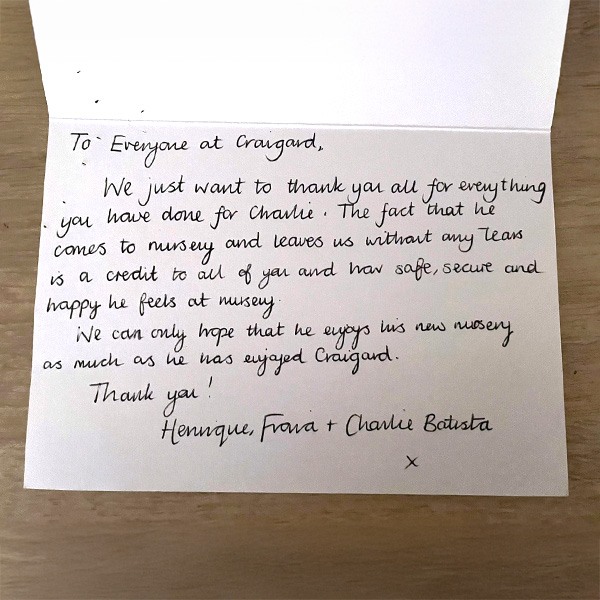 To Everyone at Craigard,
We just want to thank you all for everything
you have done for Charlie. The fact that he
comes to nursery and leaves us without any tears
is a credit to all of you and how safe, secure and
happy he feels at nursery.
We can only hope that he enjoys his new nursery
as much as he has enjoyed Craigard.
Thank you!
Henrique, + Charlie Batista
x